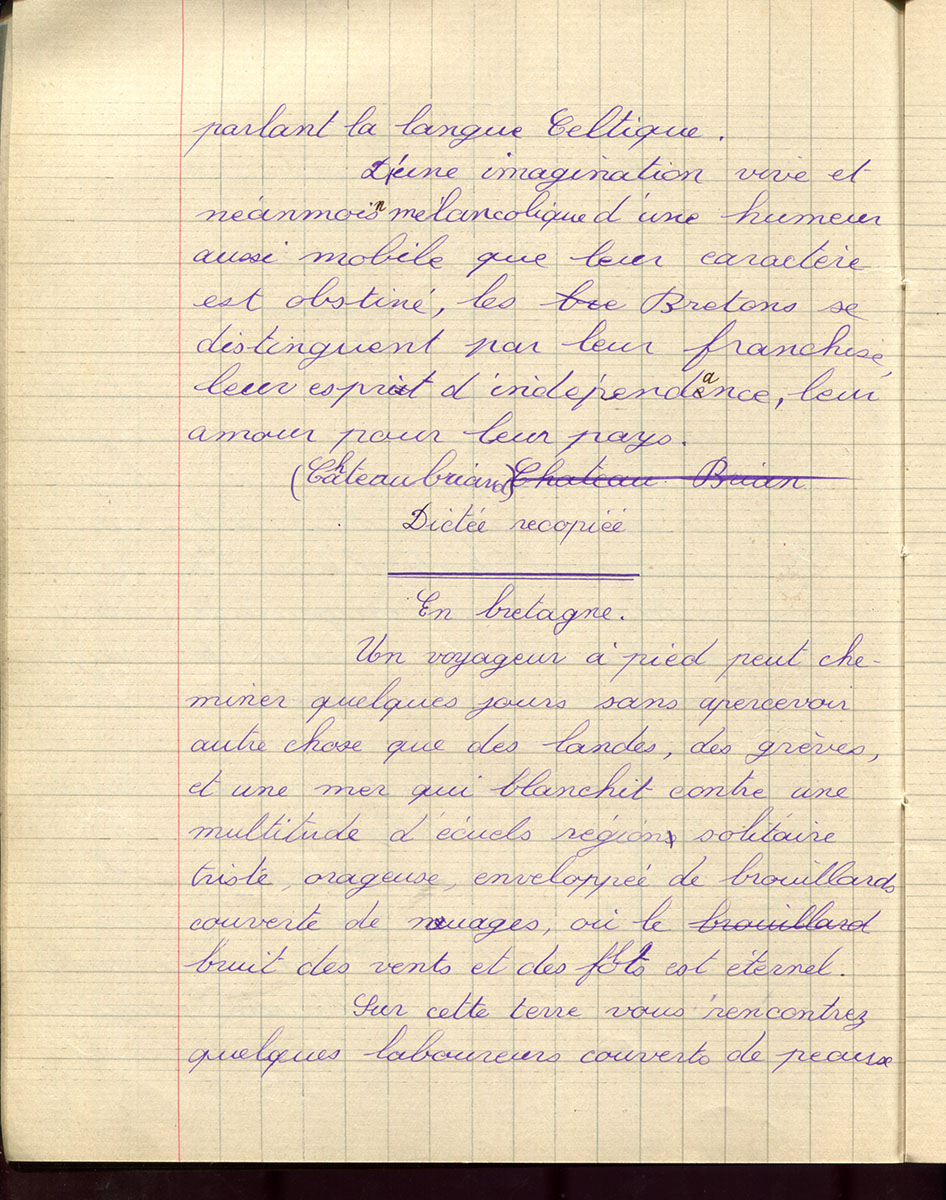 parlant la langue Celtique.
D'une imagination vive et
néanmoins mélancolique d'une humeur
aussi mobile que leur caractère
est obstiné, les bre Bretons se
distinguent par leur franchise,
leur esprit d'indépendance, leur
amour pour leur pays.
(Châteaubriand) Chateau Brian
Dictée recopiée
En bretagne.
Un voyageur à pied peut che-
miner quelques jours sans apercevoir
autre chose que des landes, des grèves,
et une mer qui blanchit contre une
multitude d'écuels région solitaire
triste, orageuse, enveloppée de brouillards
couverte de nuages, où le brouillard
bruit des vents et des flots est éternel.
Sur cette terre vous rencontrez
quelques laboureurs couverts de peaux